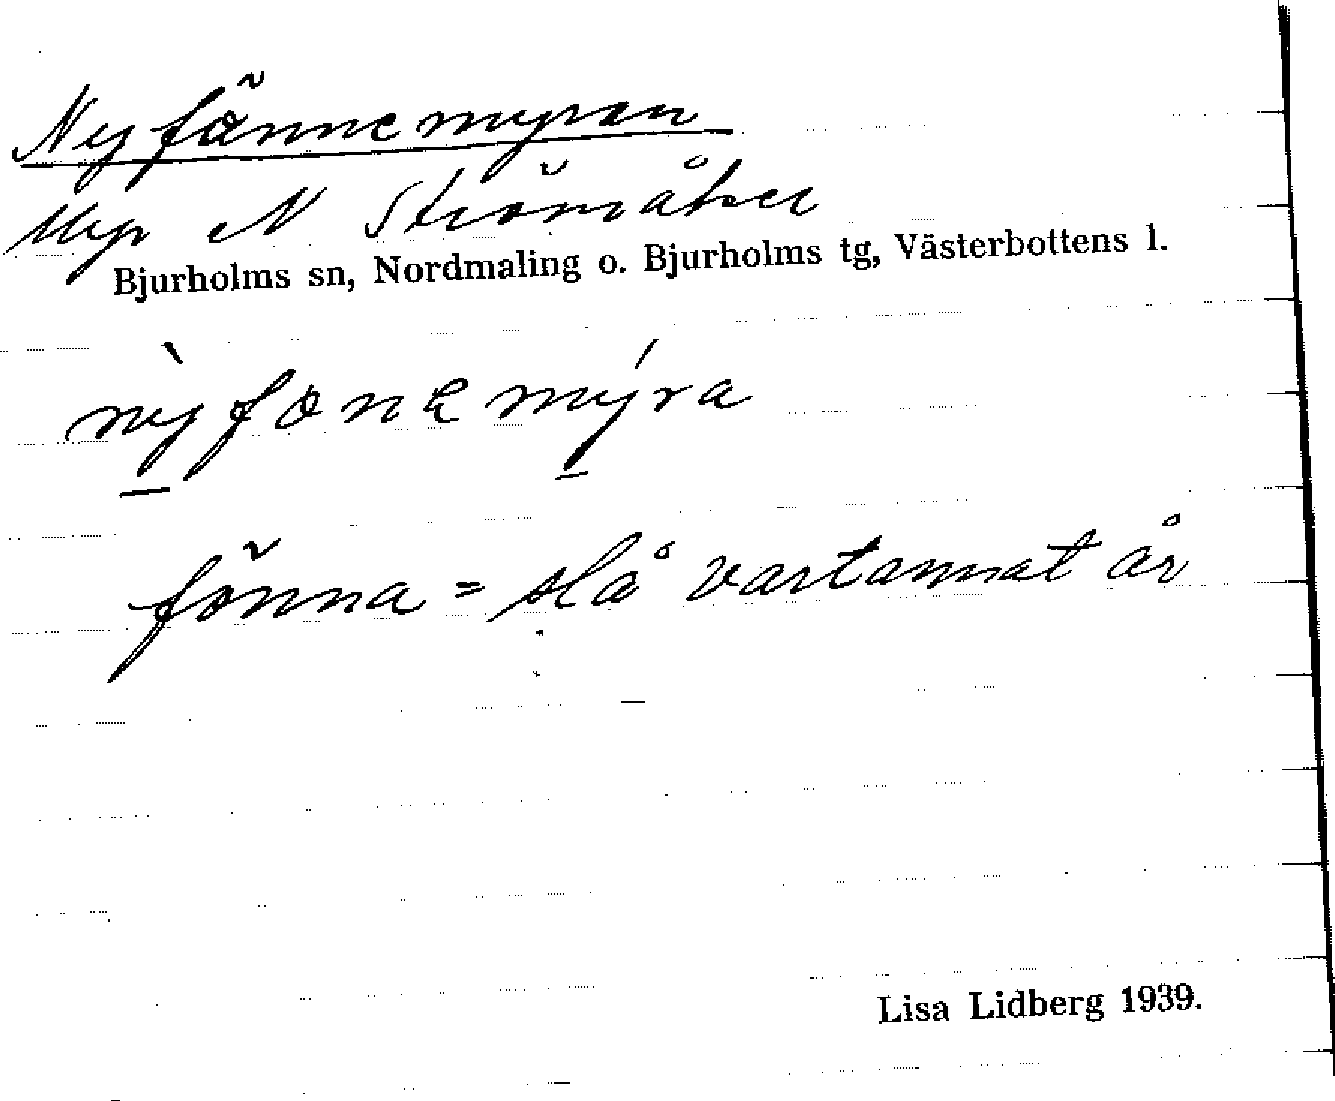 Nyfännemyran
Myr N Strömåker
Bjurholms sn, Nordmaling o. Bjurholms tg, Västerbottens l.
nỳfonemýra
fönna = slå vartannat år
Lisa Lidberg 1939.